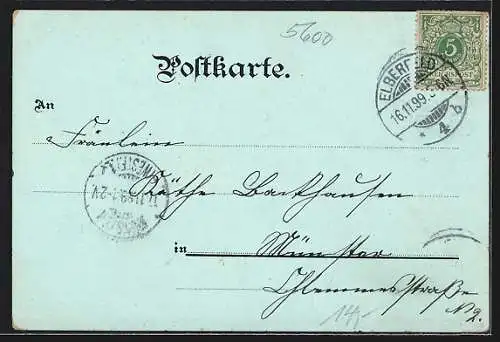 5600
Postkarte.
5
ELBERFELD
16.11.99.
* 4 d
An
Fräulein
Käthe Backhausen
in Münster
(WESTF.)
17.11.99. 1-2V.
Clemensstraße
No 2.
14,-